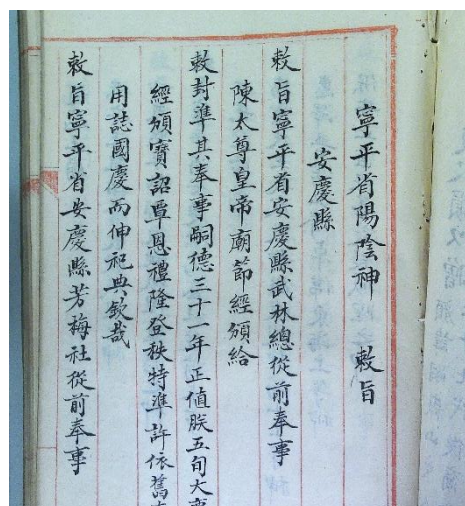 寧平省陽陰神 敕旨
安慶縣
敕旨寧平省安慶縣武林總從前奉事
陳太尊皇帝廟節經頒給
敕封準其奉事嗣德三十一年正值朕五旬大
經頒寶詔覃恩禮隆登秩特準許依舊
用誌國慶而伸祀典欽哉
敕旨寧平省安慶縣芳梅社從前奉事